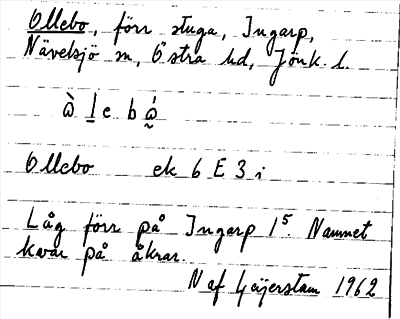 Ollebo, förr stuga, Ingarp,
Nävelsjö sn, Östra hd, Jönk. l.
ò l e b ó
Ollebo ek 6 E 3 i
Låg förr på Ingarp 1⁵. Namnet
kvar på åkrar.
N af Geijerstam 1962